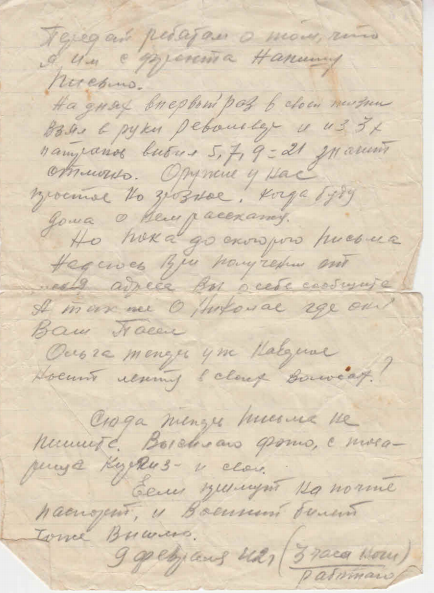 Передай ребятам о том, что
я им с фронта напишу
письмо.
На днях впервый раз в своей жизни
взял в руки револьвер и из 3х
патронов выбил 5, 7, 9 = 21 значит
отлично. Оружие у нас
простое но грозное, когда буду
дома о нем расскажу.
Но пока до скорого письма
Надеюсь при получении от
меня адреса вы о себе сообщите
А так же о Николае где он
Ваш
Ольга теперь уж наверное
носит ленту в своих волосах?
Сюда теперь письма не
пишите. Высылаю фото, с това-
рища и свои.
Если примут на почте
паспорт, и Военный билет
тоже Вышлю.
9 февраля 42 г (3 часа ночи)